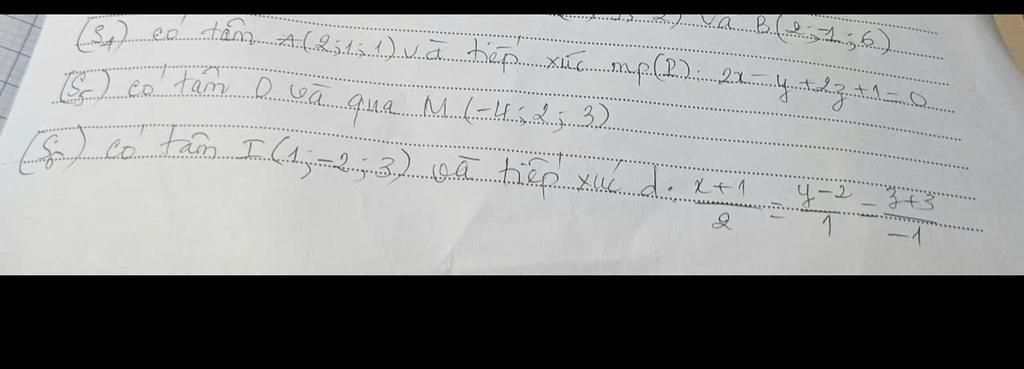 và B(2;-1;6)
(S4) có tâm A(2;1;1) và tiếp xúc mp(P): 2x-y+2z+1=0
(S5) có tâm O và qua M(-4;2;3)
(S6) có tâm I(1;-2;3) và tiếp xúc d: x+1/2 = y-2/1 = z+3/-1